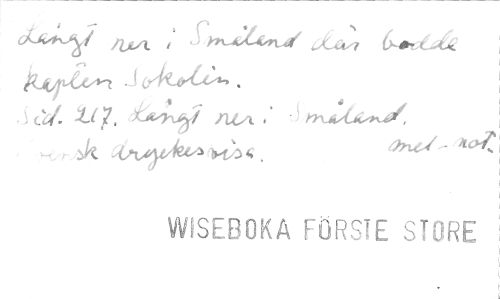 Långt ner i Småland där bodde
kapten Sokolin.
Sid. 217. Långt ner i Småland.
Svensk dryckesvisa. mel-not.
WISEBOKA FÖRSTE STORE